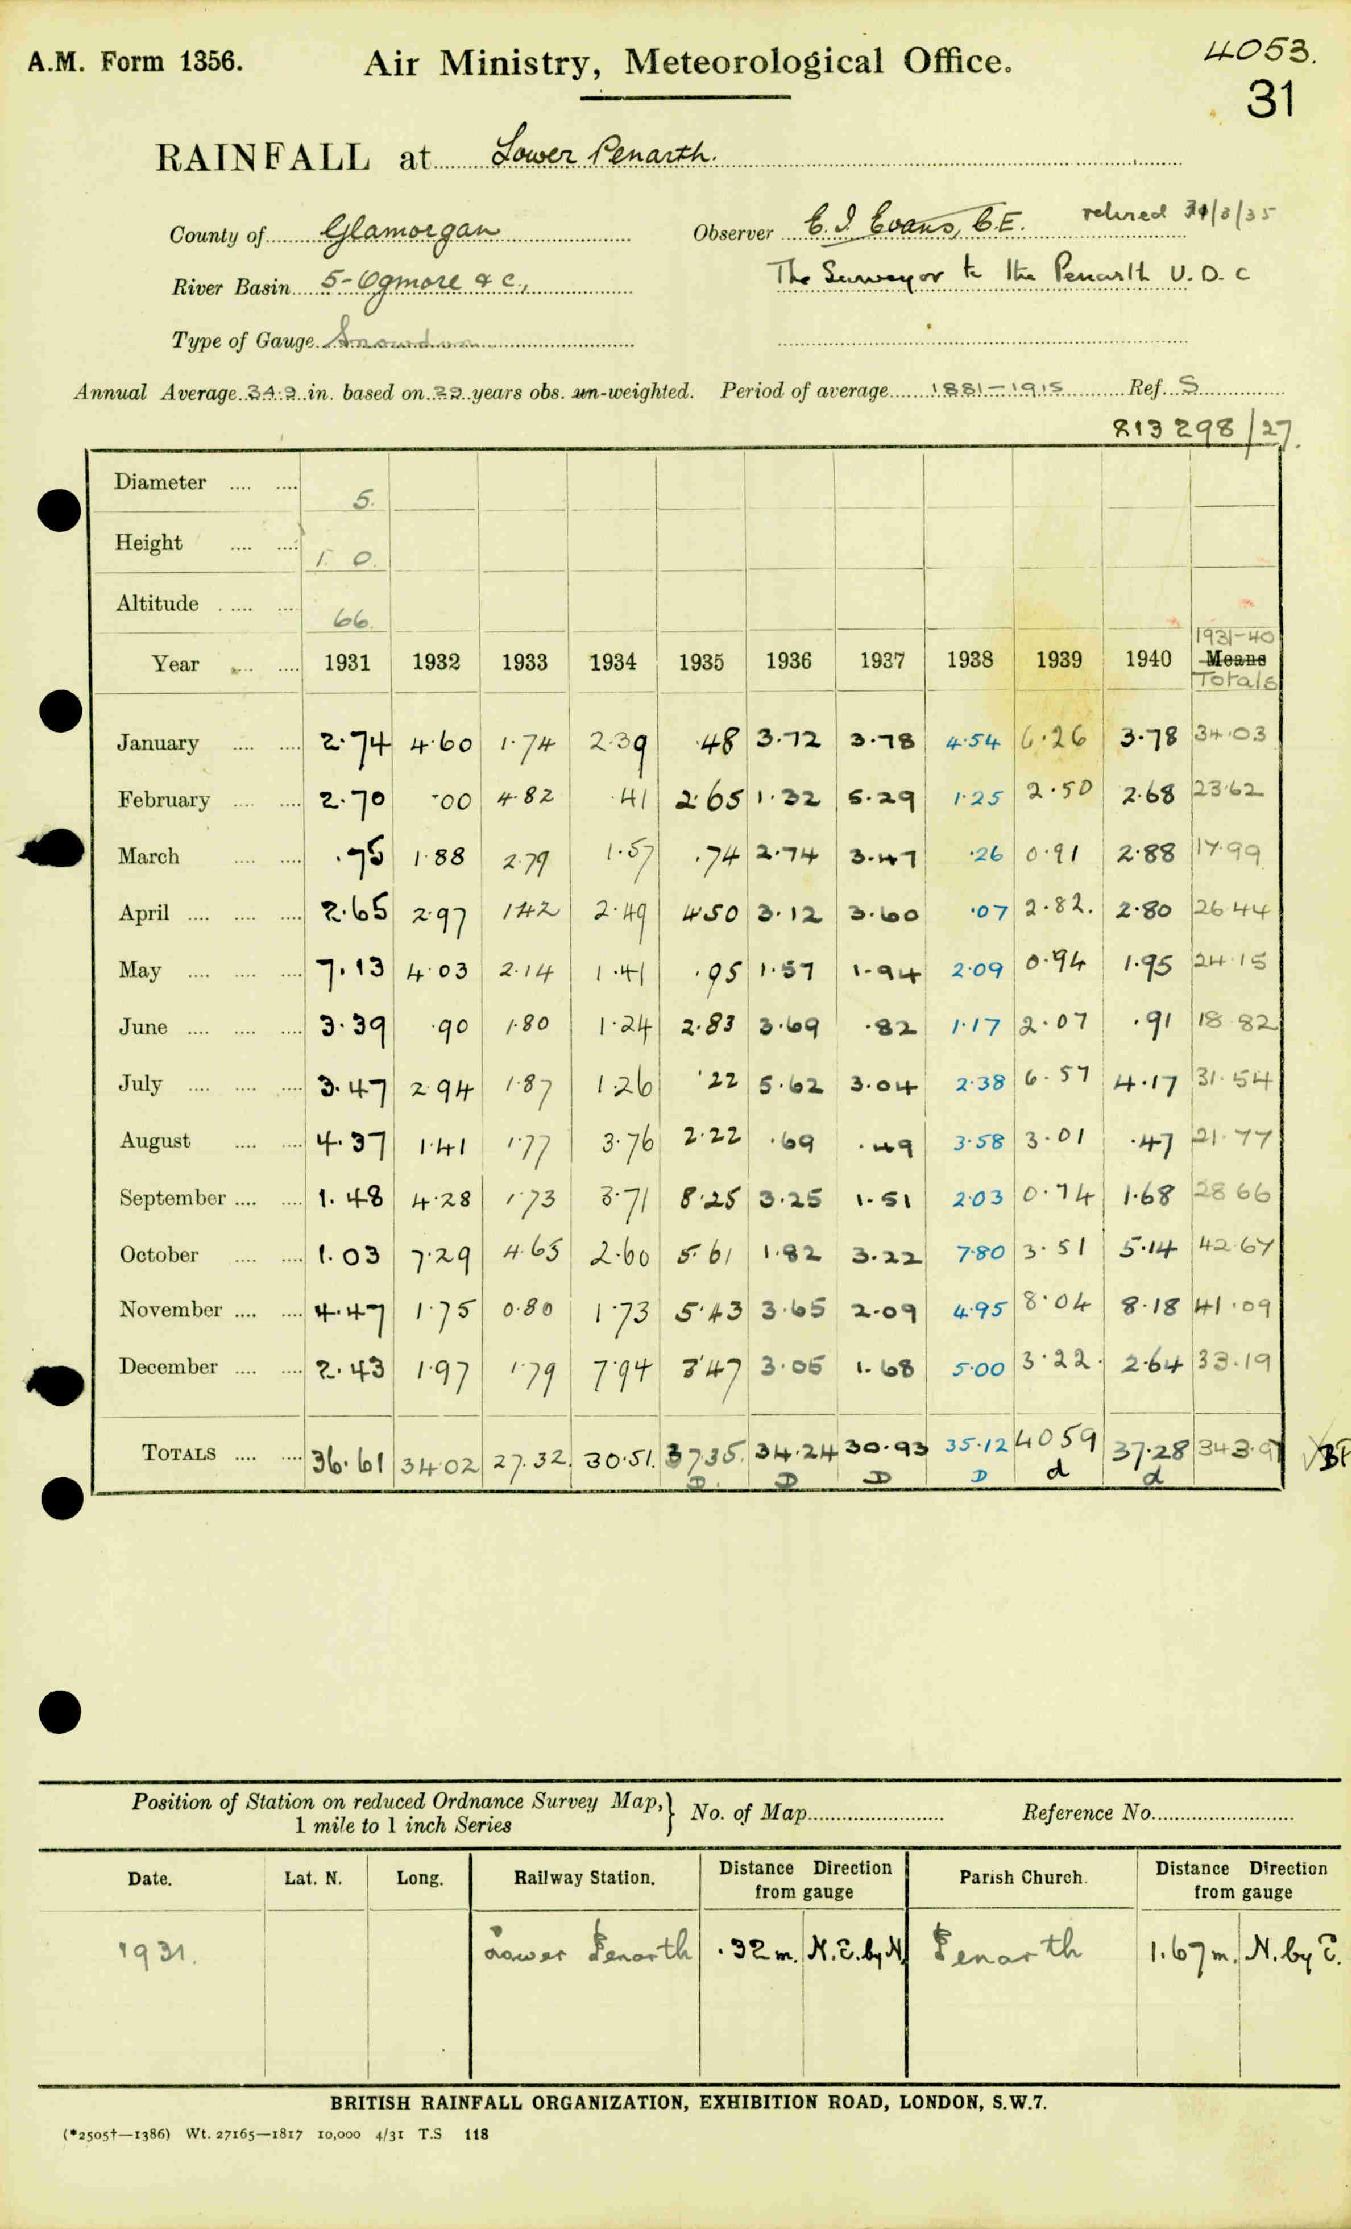 A.M. Form 1356.
Air Ministry, Meteorological Office.
4053.
31
RAINFALL at Lower Penarth.
County of Glamorgan Observer E. I. Evans, C.E. retired 31/3/35
River Basin 5-Ogmore & c, The Surveyor to the Penarth U.D.C
Type of Gauge Snowdon
Annual Average 34.9 in. based on 29 years obs. un-weighted. Period of average 1881-1915 Ref. S
213298/27.
Diameter 5.
Height 1. 0.
Altitude 66.
Year 1931 1932 1933 1934 1935 1936 1937 1938 1939 1940 1931-40 Means Totals
January 2.74 4.60 1.74 2.39 .48 3.72 3.78 4.54 6.26 3.78 34.03
February 2.70 .00 4.82 .41 2.65 1.32 5.29 1.25 2.50 2.68 23.62
March .75 1.88 2.79 1.57 .74 2.74 3.47 .26 0.91 2.88 17.99
April 2.65 2.97 1.42 2.49 4.50 3.12 3.60 .07 2.82. 2.80 26.44
May 7.13 4.03 2.14 1.41 .95 1.57 1.94 2.09 0.94 1.95 24.15
June 3.39 .90 1.80 1.24 2.83 3.69 .82 1.17 2.07 .91 18.82
July 3.47 2.94 1.87 1.26 .22 5.62 3.04 2.38 6.57 4.17 31.54
August 4.37 1.41 1.77 3.76 2.22 .69 .49 3.58 3.01 .47 21.77
September 1.48 4.28 1.73 3.71 8.25 3.25 1.51 2.03 0.74 1.68 28.66
October 1.03 7.29 4.65 2.60 5.61 1.82 3.22 7.80 3.51 5.14 42.67
November 4.47 1.75 0.80 1.73 5.43 3.65 2.09 4.95 8.04 8.18 41.09
December 2.43 1.97 1.79 7.94 3.47 3.05 1.68 5.00 3.22. 2.64 33.19
TOTALS 36.61 34.02 27.32. 30.51. 37.35. 34.24 30.93 35.12 40.59 37.28 343.97
D. D D D d d
Position of Station on reduced Ordnance Survey Map, 1 mile to 1 inch Series } No. of Map Reference No.
Date. Lat. N. Long. Railway Station. Distance Direction from gauge Parish Church. Distance Direction from gauge
1931. Lower Penarth .32 m. N.E. by N. Penarth 1.67 m. N. by E.
BRITISH RAINFALL ORGANIZATION, EXHIBITION ROAD, LONDON, S.W.7.
(*2505†—1386) Wt. 27165—1817 10,000 4/31 T.S 118